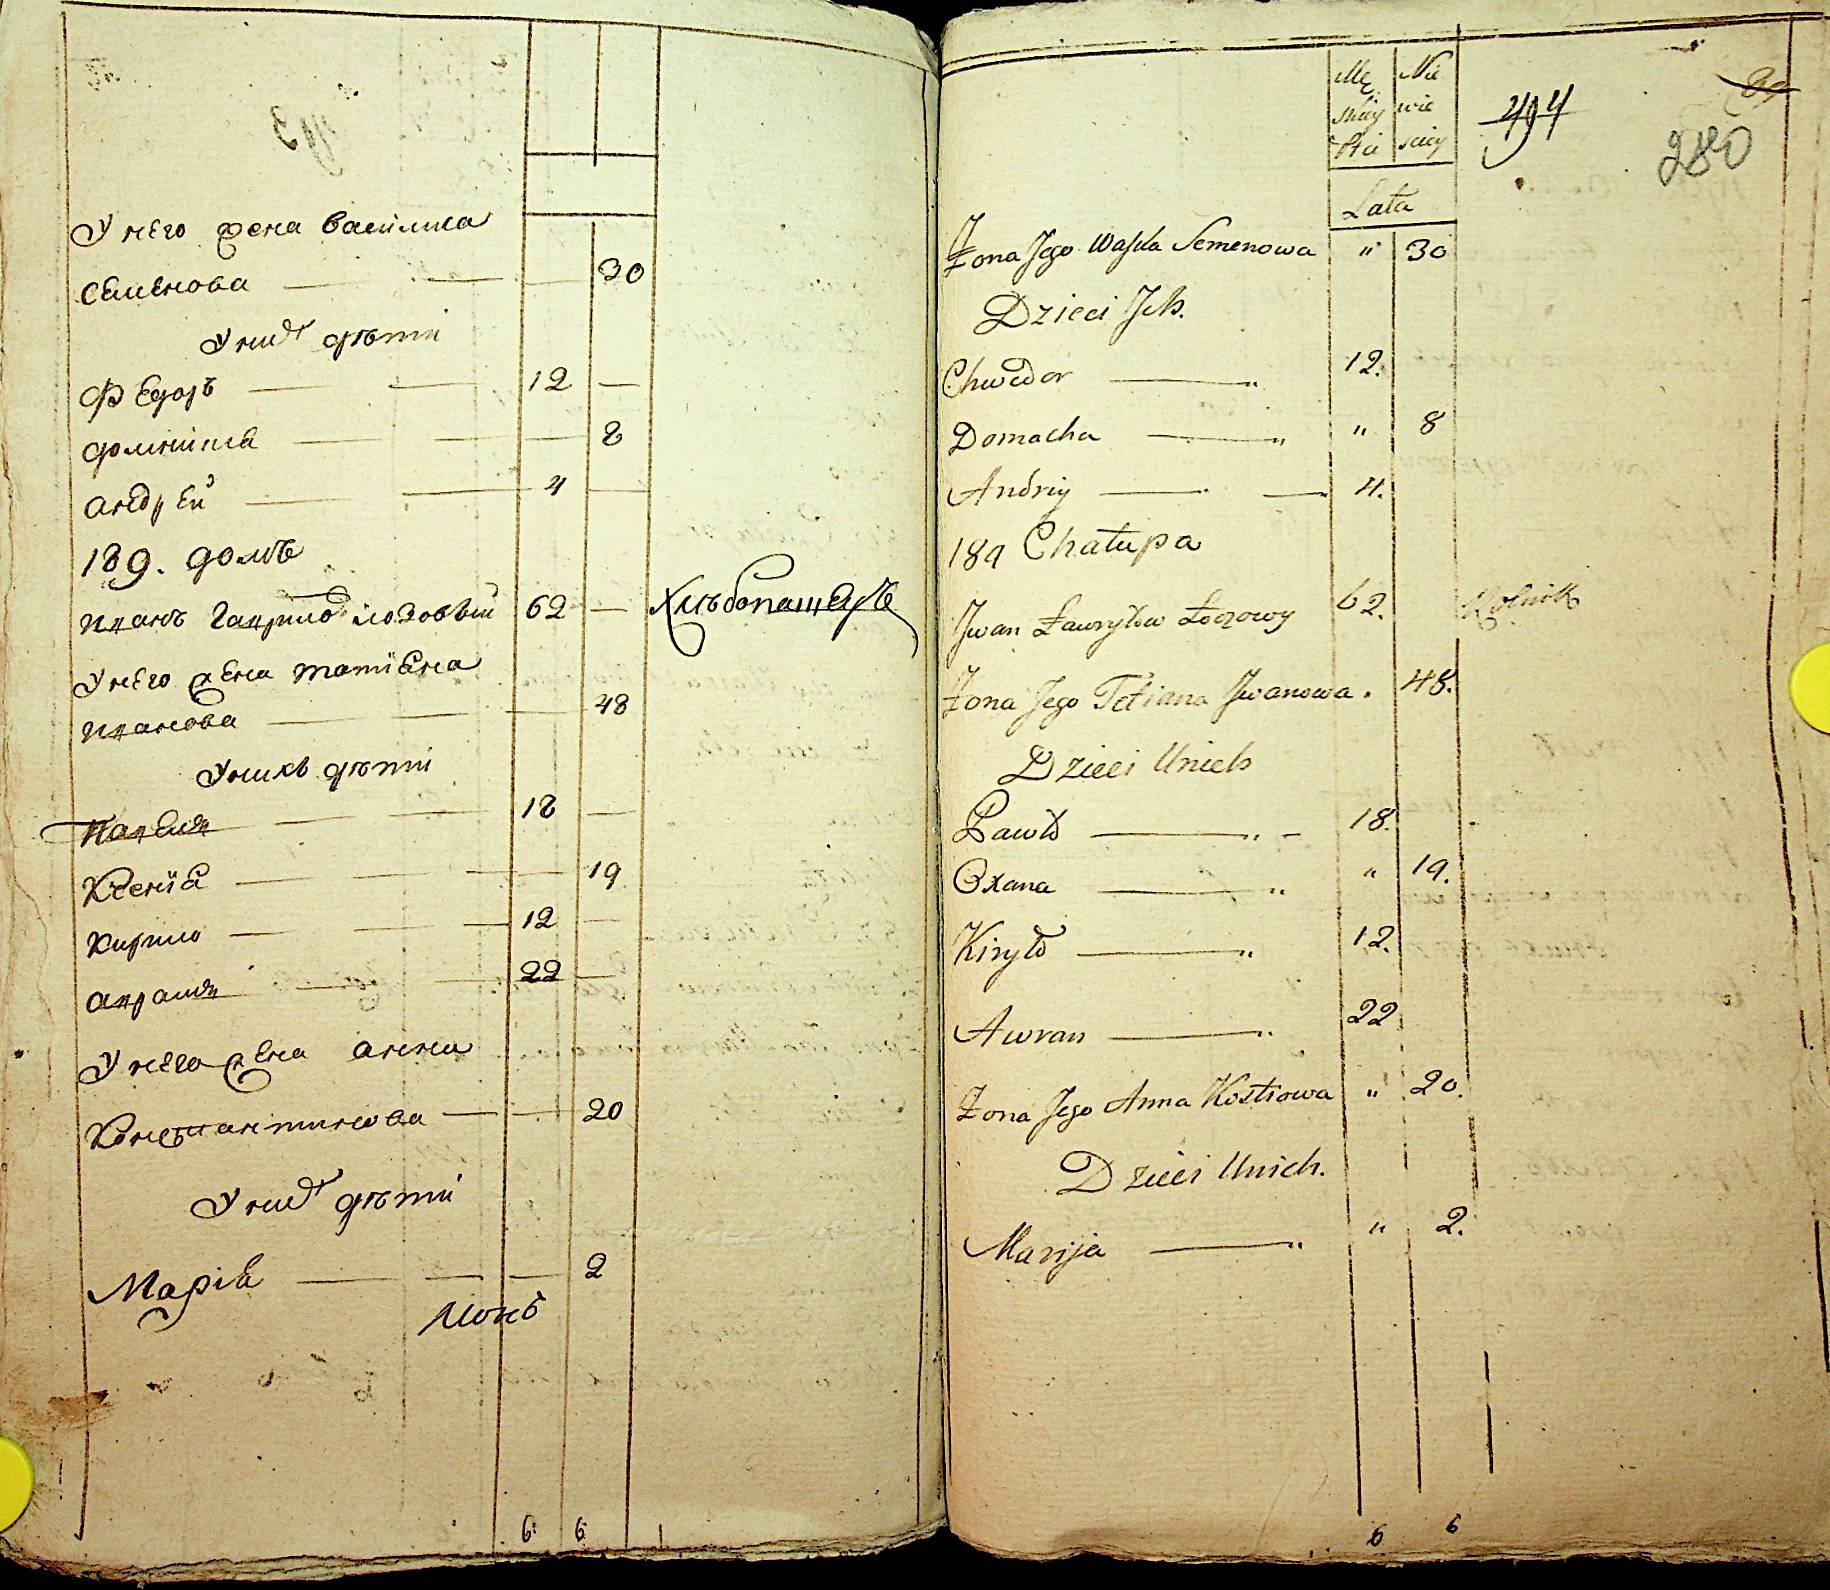 У него жена Василиса
Семенова — — — 30
У них дѣти
Федоръ — — 12 —
Домникіа — — — 8
Андрей — — 4 —
189. домъ
Иванъ Гаврилов Лозовый 62 — Хлѣбопашецъ
У него жена Татиана
Иванова — — — 48
У нихъ дѣти
Павелъ — — 18 —
Ксеніа — — — 19
Кирило — — 12 —
Аврамъ — — 22 —
У него жена Анна
Константинова — — 20
У них дѣти
Маріа — — — 2
6 6
Mę Nie
skiey wie
Płci sciey
494
280
Lata
Żona Jego Waska Semenowa " 30
Dzieci Jch.
Chwedor — " 12.
Domacha — " " 8
Andriy — — 4.
189 Chałupa
Jwan Hawryłow Łozowy 62. Rolnik
Żona Jego Tetiana Jwanowa . 48.
Dzieci Unich
Pawło — " - 18.
Oxana — " " 19.
Kiryło — " 12.
Awran — " 22
Żona Jego Anna Kostiowa " 20.
Dzieci Unich.
Marija — " " 2.
6 6